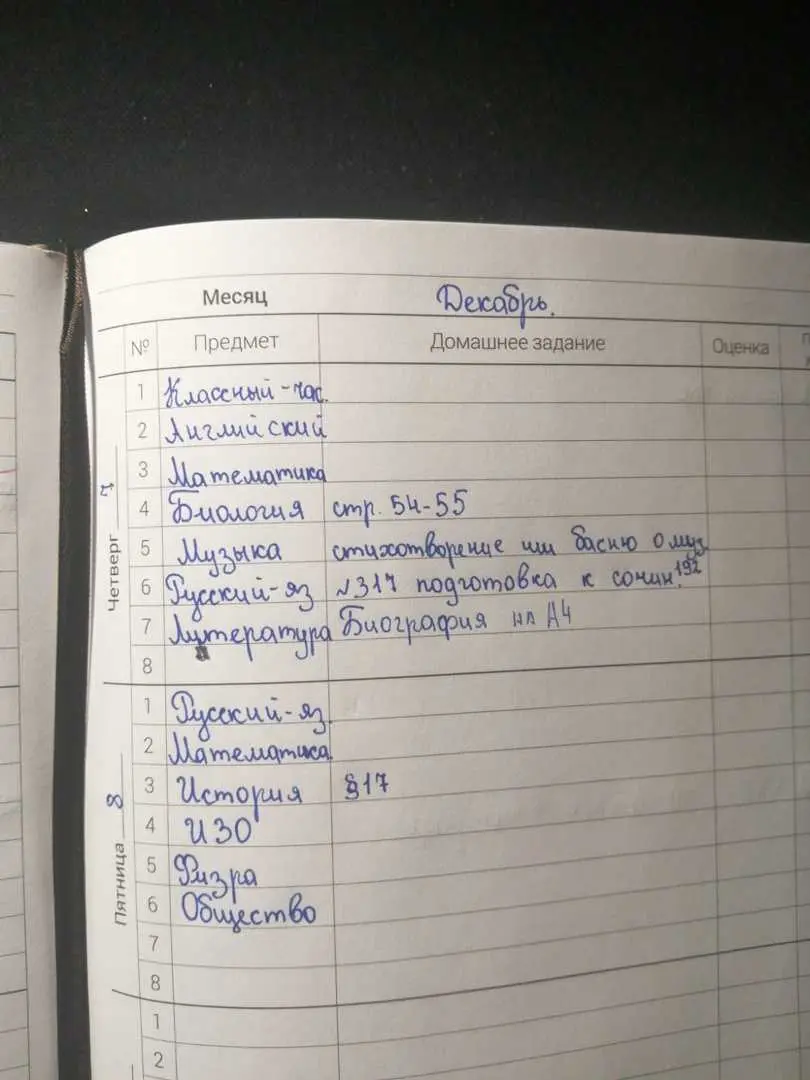 Месяц Декабрь.
№ Предмет Домашнее задание Оценка
Четверг 7
1 Классный-час.
2 Английский
3 Математика
4 Биология стр. 54-55
5 Музыка стихотворение или басню о муз
6 Русский-яз №317 подготовка к сочин. 192
7 Литература Биография на А4
8
Пятница 8
1 Русский-яз.
2 Математика
3 История §17
4 ИЗО
5 Физра
6 Общество
7
8
1
2